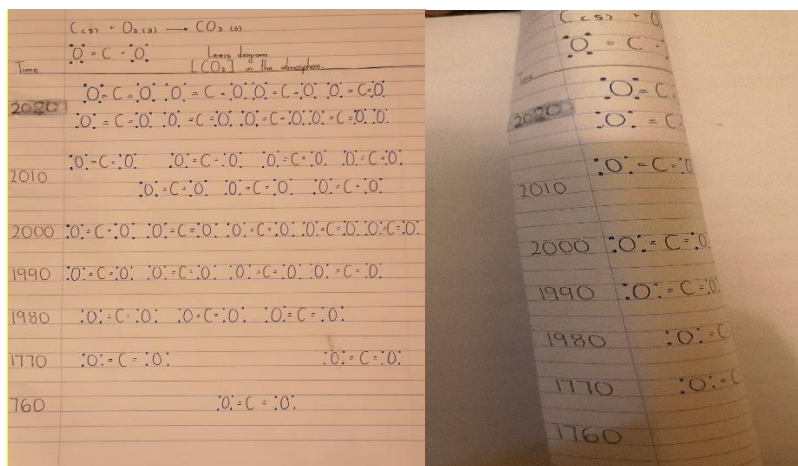 C(s) + O₂(s) → CO₂(s)
:O: = C = :O:
Lewis diagram
Time [CO₂] in the atmosphere.
:O:=C=:O: :O:=C=:O: :O:=C=:O: :O:=C=:O:
2020
:O:=C=:O: :O:=C=:O: :O:=C=:O: :O:=C=:O:
:O:=C=:O: :O:=C=:O: :O:=C=:O: :O:=C=:O:
2010
:O:=C=:O: :O:=C=:O: :O:=C=:O:
2000 :O:=C=:O: :O:=C=:O: :O:=C=:O: :O:=C=:O: :O:=C=:O:
1990 :O:=C=:O: :O:=C=:O: :O:=C=:O: :O:=C=:O:
1980 :O:=C=:O: :O:=C=:O: :O:=C=:O:
1770 :O:=C=:O: :O:=C=:O:
760 :O:=C=:O:
C(s) + O₂
:O: = C =
Time
:O:=C
2020 :O: = C
:O:=C=:O
2010
2000 :O:=C=:O
1990 :O:=C=:O
1980 :O:=C
1770 :O:=C
1760